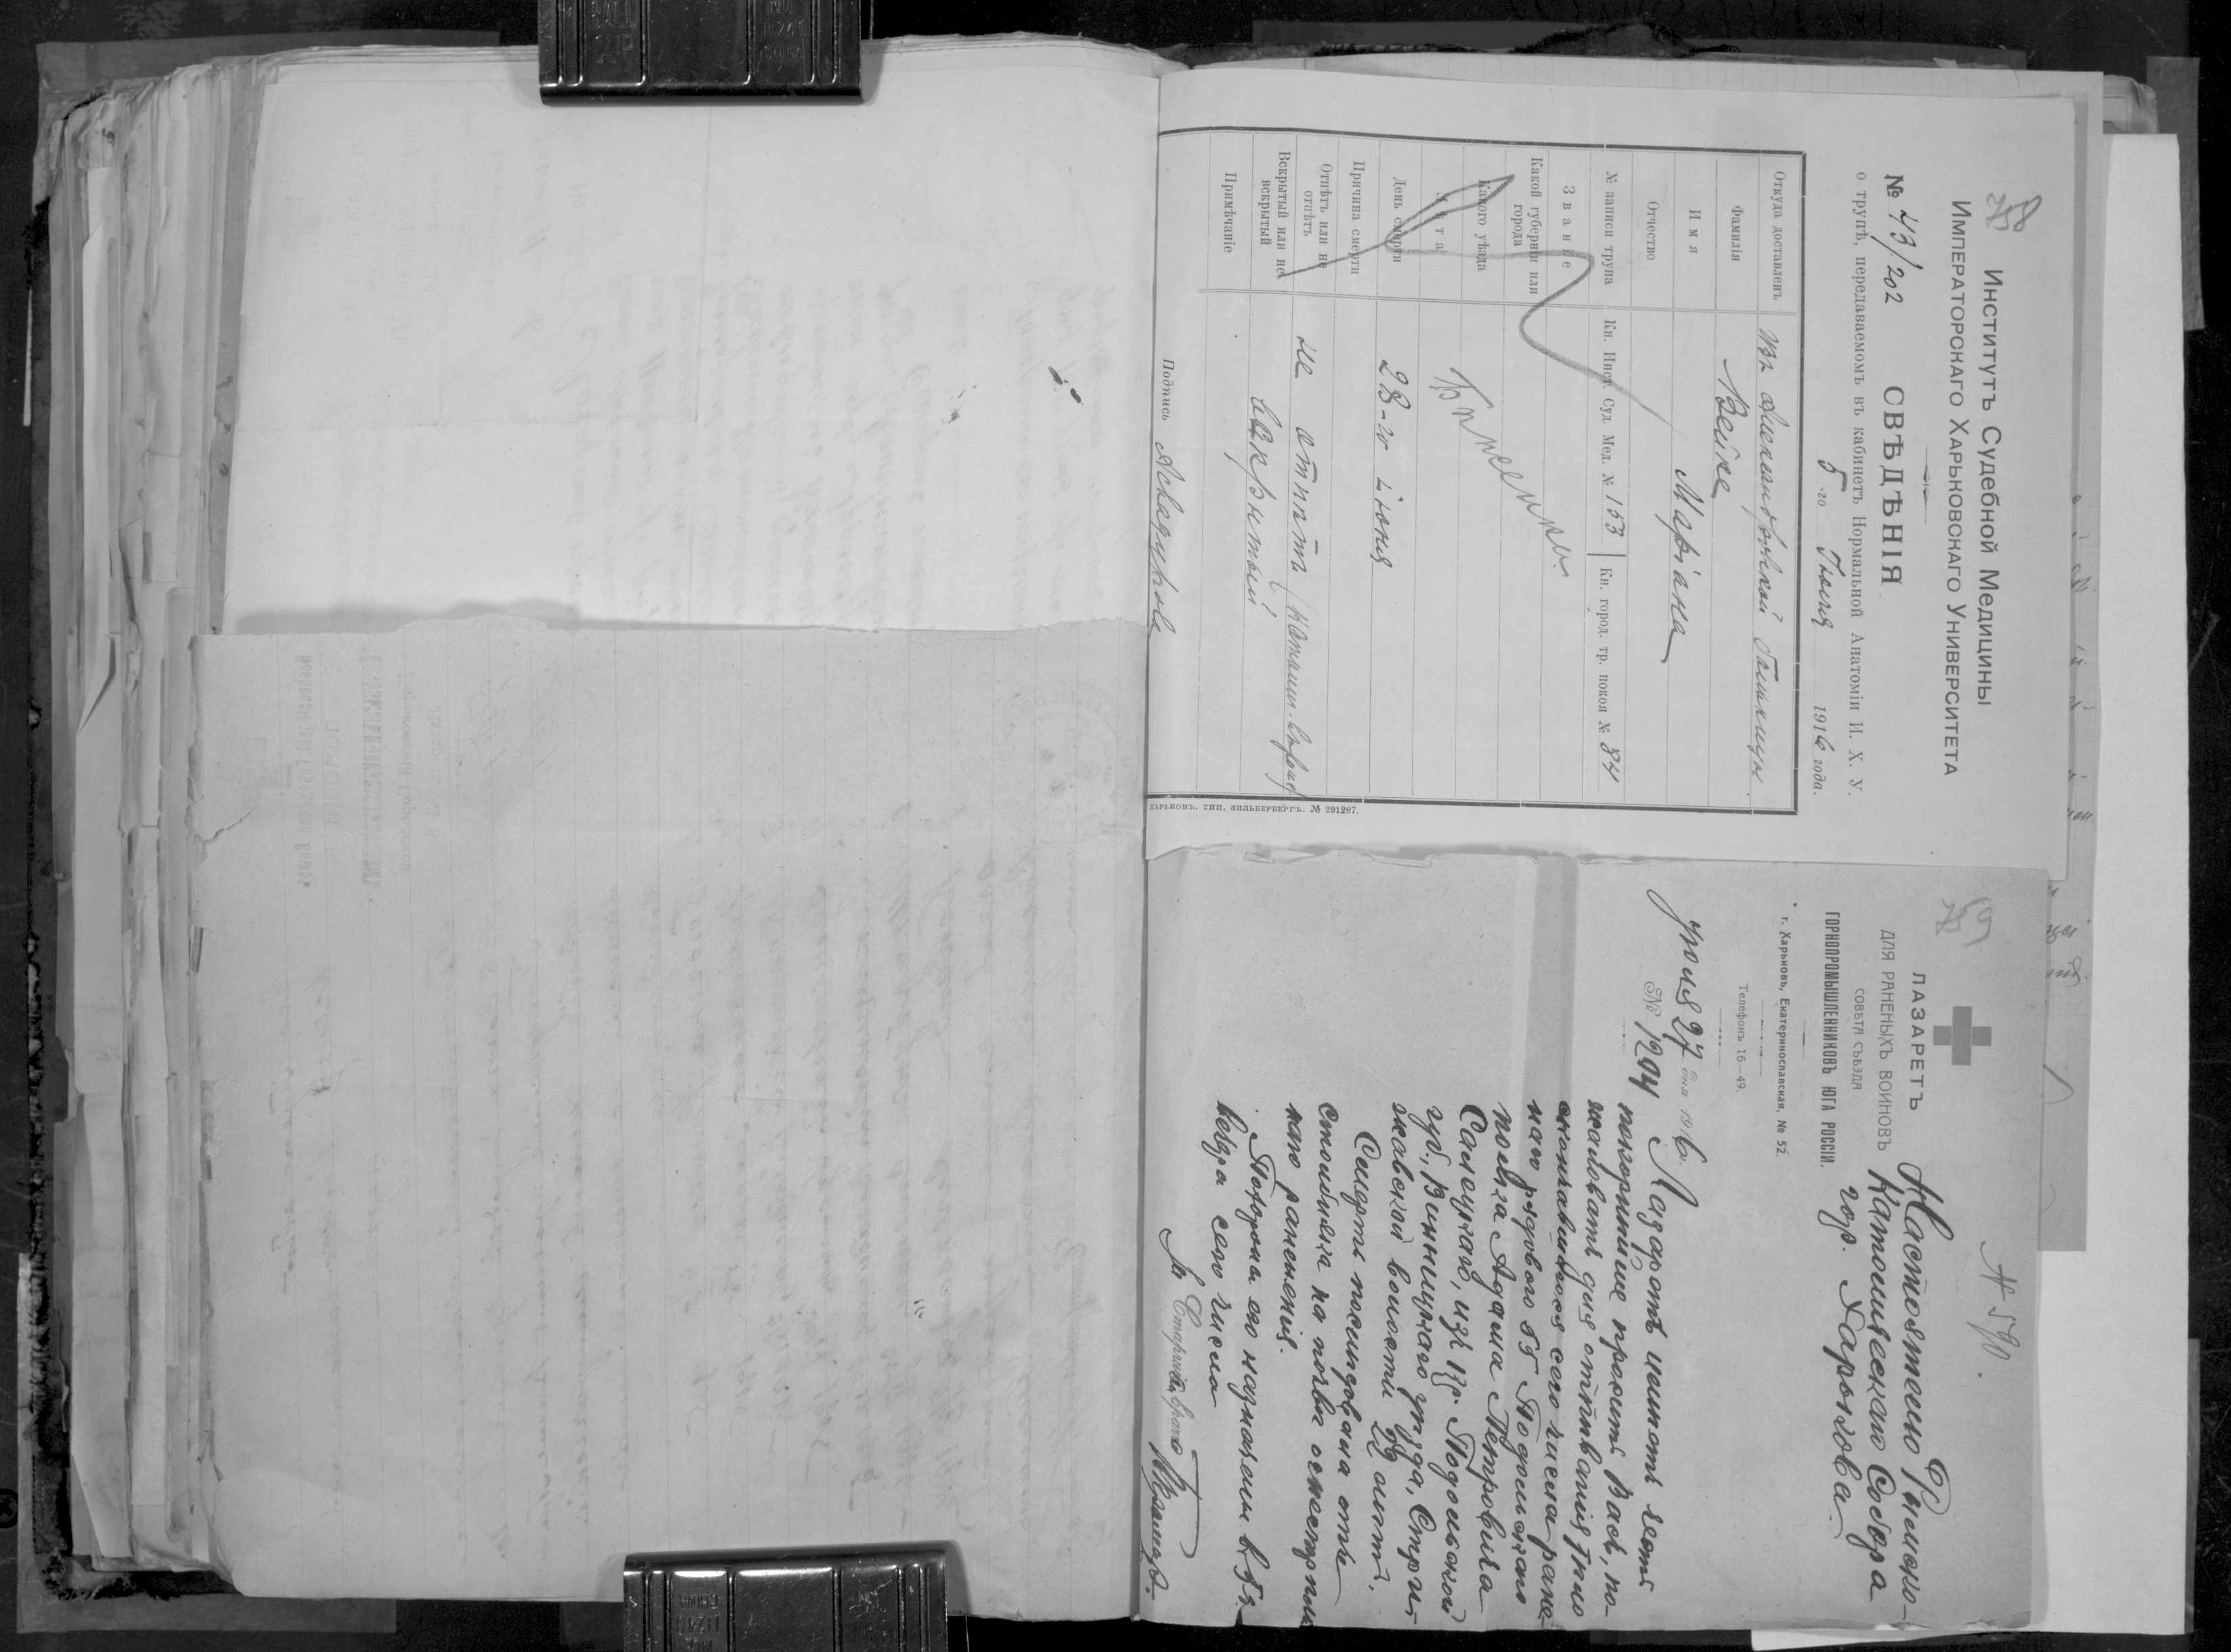 Институтъ Судебной Медицины
Императорскаго Харьковскаго Университета
№ 43/202 СВѢДѢНІЯ
о трупѣ, передаваемомъ въ кабинетъ Нормальной Анатоміи И. Х. У.
5-го Іюня 1916 года.
Откуда доставленъ Изъ Александровской больницы
Фамилія Вейке
Имя Маріана
Отчество
№ записи трупа Кн. Инст. Суд. Мед. № 153 Кн. город. тр. покоя № 84
Званіе
Какой губерніи или города
Какого уѣзда
Лѣта
День смерти 28-го іюня
Причина смерти
Отпѣтъ или не отпѣтъ не отпѣтъ
Вскрытый или не вскрытый вскрытый
Примѣчаніе
Подпись
ХАРЬКОВЪ. ТИП. ЗИЛЬБЕРБЕРГЪ. № 291287.
№ 590.
ЛАЗАРЕТЪ
ДЛЯ РАНЕНЫХЪ ВОИНОВЪ
СОВѢТА СЪѢЗДА
ГОРНОПРОМЫШЛЕННИКОВЪ ЮГА РОССІИ.
г. Харьковъ, Екатеринославская, № 52.
Телефонъ 16—49.
Іюля 27 дня 1916.
№ 1204
Настоятелю Римско-
Католическаго Собора
гор. Харькова.
Лазаретъ имѣетъ честь
покорнѣйше просить Васъ, по-
жаловать для отпѣванія тѣло
скончавшагося сего числа ране-
наго рядового 55 Подольскаго
полка Адама Петровича
Самоукаю, изъ кр. Подольской
губ., Винницкаго уѣзда, Стри-
жавской волости 29 лѣтъ.
Смерть послѣдовала отъ
столбняка на почвѣ
наго раненія.
Похороны его назначены въ 5 ч.
вечера сего числа
Старшій врачъ